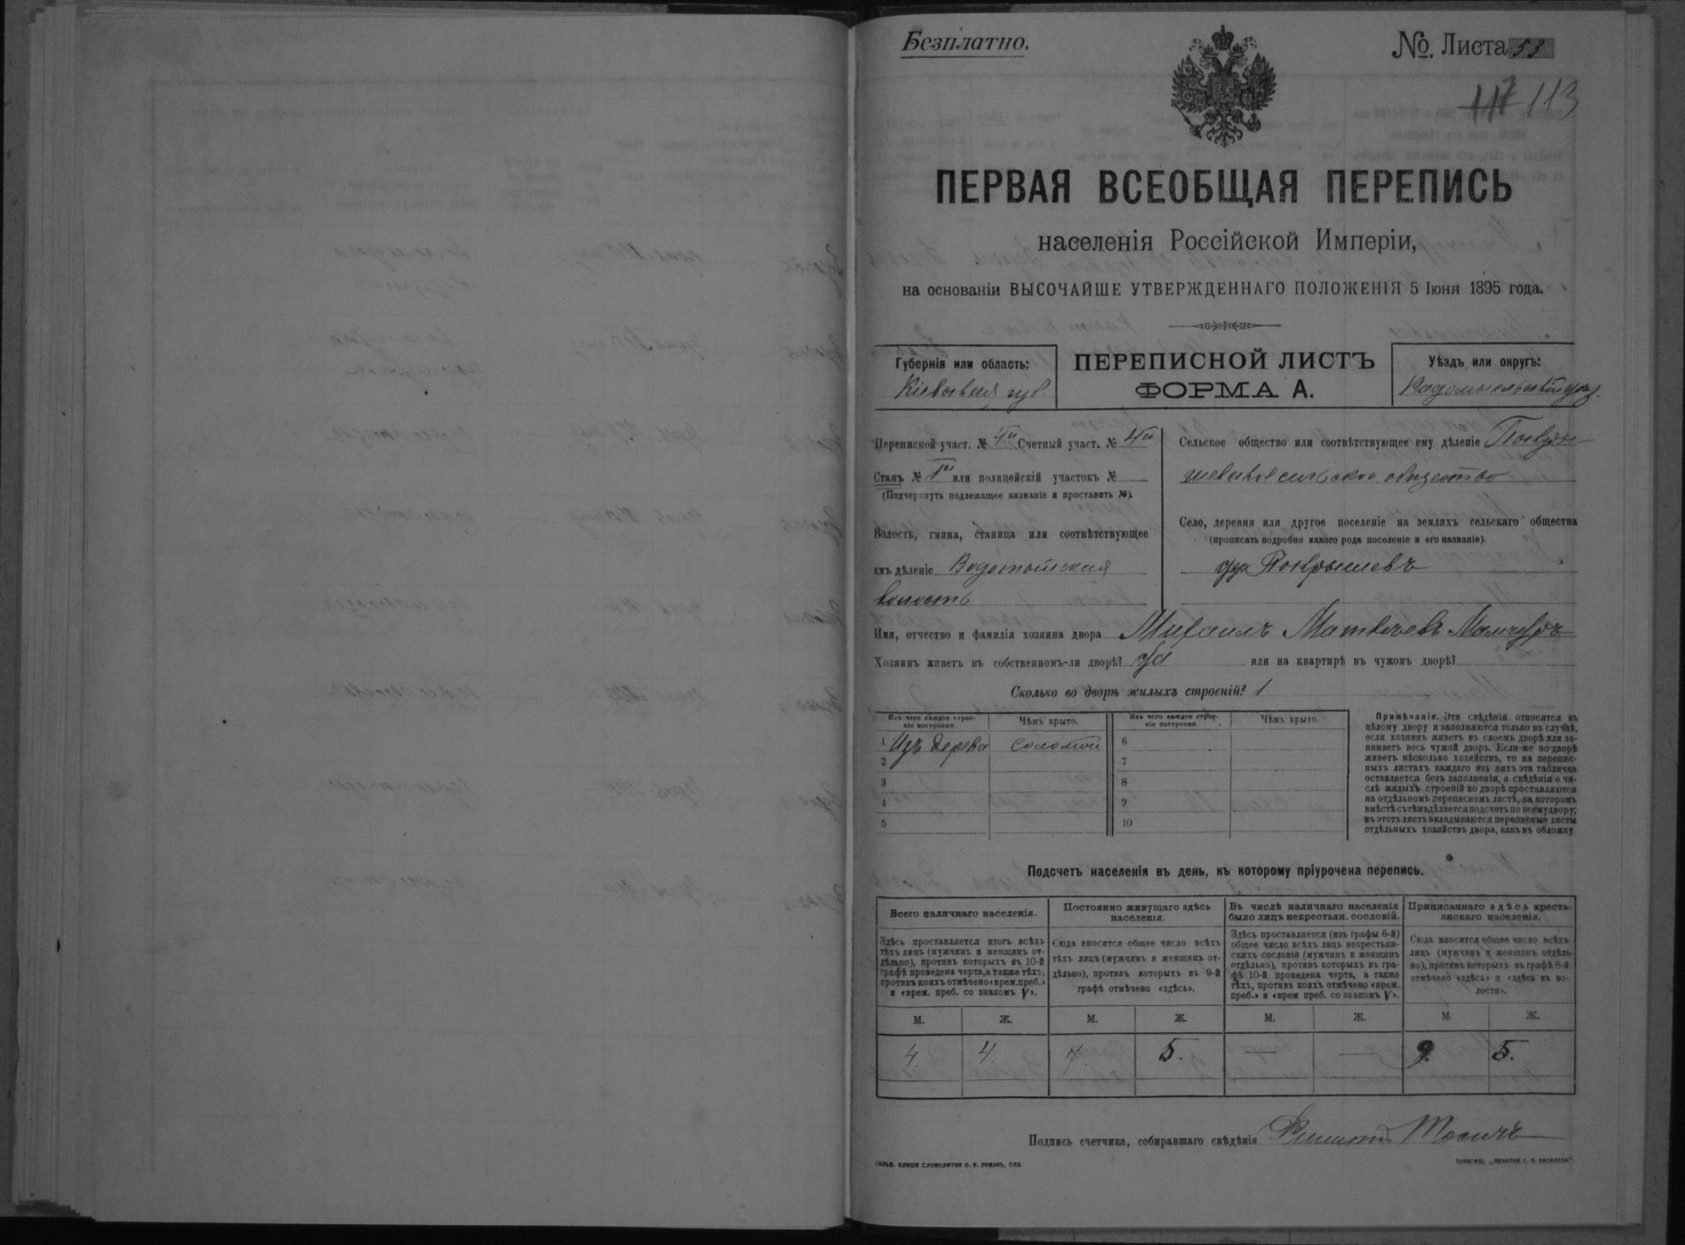 Безплатно.
№. Листа 53
113
ПЕРВАЯ ВСЕОБЩАЯ ПЕРЕПИСЬ
населенія Россійской Имперіи,
на основаніи ВЫСОЧАЙШЕ УТВЕРЖДЕННАГО ПОЛОЖЕНІЯ 5 Іюня 1895 года.
Губернія или область:
Кіевская губ.
ПЕРЕПИСНОЙ ЛИСТЪ
ФОРМА А.
Уѣздъ или округъ:
Радомысльскій уѣз.
Переписной участ. № Счетный участ. № 4й
Станъ № 1й или полицейскій участокъ №
(Подчеркнуть подлежащее названіе и проставить №).
Волость, гмина, станица или соотвѣтствующее
имъ дѣленіе
волость
Сельское общество или соотвѣтствующее ему дѣленіе Покры
шевское сельское общество
Село, деревня или другое поселеніе на земляхъ сельскаго общества
(прописать подробно какого рода поселеніе и его названіе).
дер Покрышевъ
Имя, отчество и фамилія хозяина двора Михаилъ Матвѣевъ
Хозяинъ живетъ въ собственномъ-ли дворѣ? да или на квартирѣ въ чужомъ дворѣ?
Сколько во дворѣ жилыхъ строеній? 1
Изъ чего каждое строе-
ніе построено.
Чѣмъ крыто.
Изъ чего каждое строе-
ніе построено.
Чѣмъ крыто.
1 Изъ дерева соломой 6
2 7
3 8
4 9
5 10
Примѣчаніе. Эти свѣдѣнія относятся къ
цѣлому двору и заполняются только въ случаѣ,
если хозяинъ живетъ въ своемъ дворѣ или за-
нимаетъ весь чужой дворъ. Если-же во дворѣ
живетъ нѣсколько хозяйствъ, то на перепис-
ныхъ листахъ каждаго изъ нихъ эта табличка
оставляется безъ заполненія, а свѣдѣнія о чи-
слѣ жилыхъ строеній во дворѣ проставляются
на отдѣльномъ переписномъ листѣ, на которомъ
вмѣстѣ съ тѣмъ дѣлается подсчетъ по всему двору;
въ этотъ листъ вкладываются переписные листы
отдѣльныхъ хозяйствъ двора, какъ въ обложку.
Подсчетъ населенія въ день, къ которому пріурочена перепись.
Всего наличнаго населенія.
Здѣсь проставляется итогъ всѣхъ
тѣхъ лицъ (мужчинъ и женщинъ от-
дѣльно), противъ которыхъ въ 10-й
графѣ проведена черта, а также тѣхъ,
противъ коихъ отмѣчено «врем. преб.»
и «врем. преб. со знакомъ V».
Постоянно живущаго здѣсь
населенія.
Сюда вносится общее число всѣхъ
тѣхъ лицъ (мужчинъ и женщинъ от-
дѣльно), противъ которыхъ въ 9-й
графѣ отмѣчено «здѣсь».
Въ числѣ наличнаго населенія
было лицъ некрестьян. сословій.
Здѣсь проставляется (изъ графы 6-й)
общее число всѣхъ лицъ некрестьян-
скихъ сословій (мужчинъ и женщинъ
отдѣльно), противъ которыхъ въ гра-
фѣ 10-й проведена черта, а также
тѣхъ, противъ коихъ отмѣчено «врем.
преб.» и «врем преб. со знакомъ V».
Приписаннаго здѣсь кресть-
янскаго населенія.
Сюда вносится общее число всѣхъ
лицъ (мужчинъ и женщинъ отдѣль-
но), противъ которыхъ въ графѣ 8-й
отмѣчено «здѣсь» и «здѣсь въ во-
лости».
М. Ж. М. Ж. М. Ж. М. Ж.
4. 4. 7. 5. — — 9. 5.
Подпись счетчика, собиравшаго свѣдѣнія